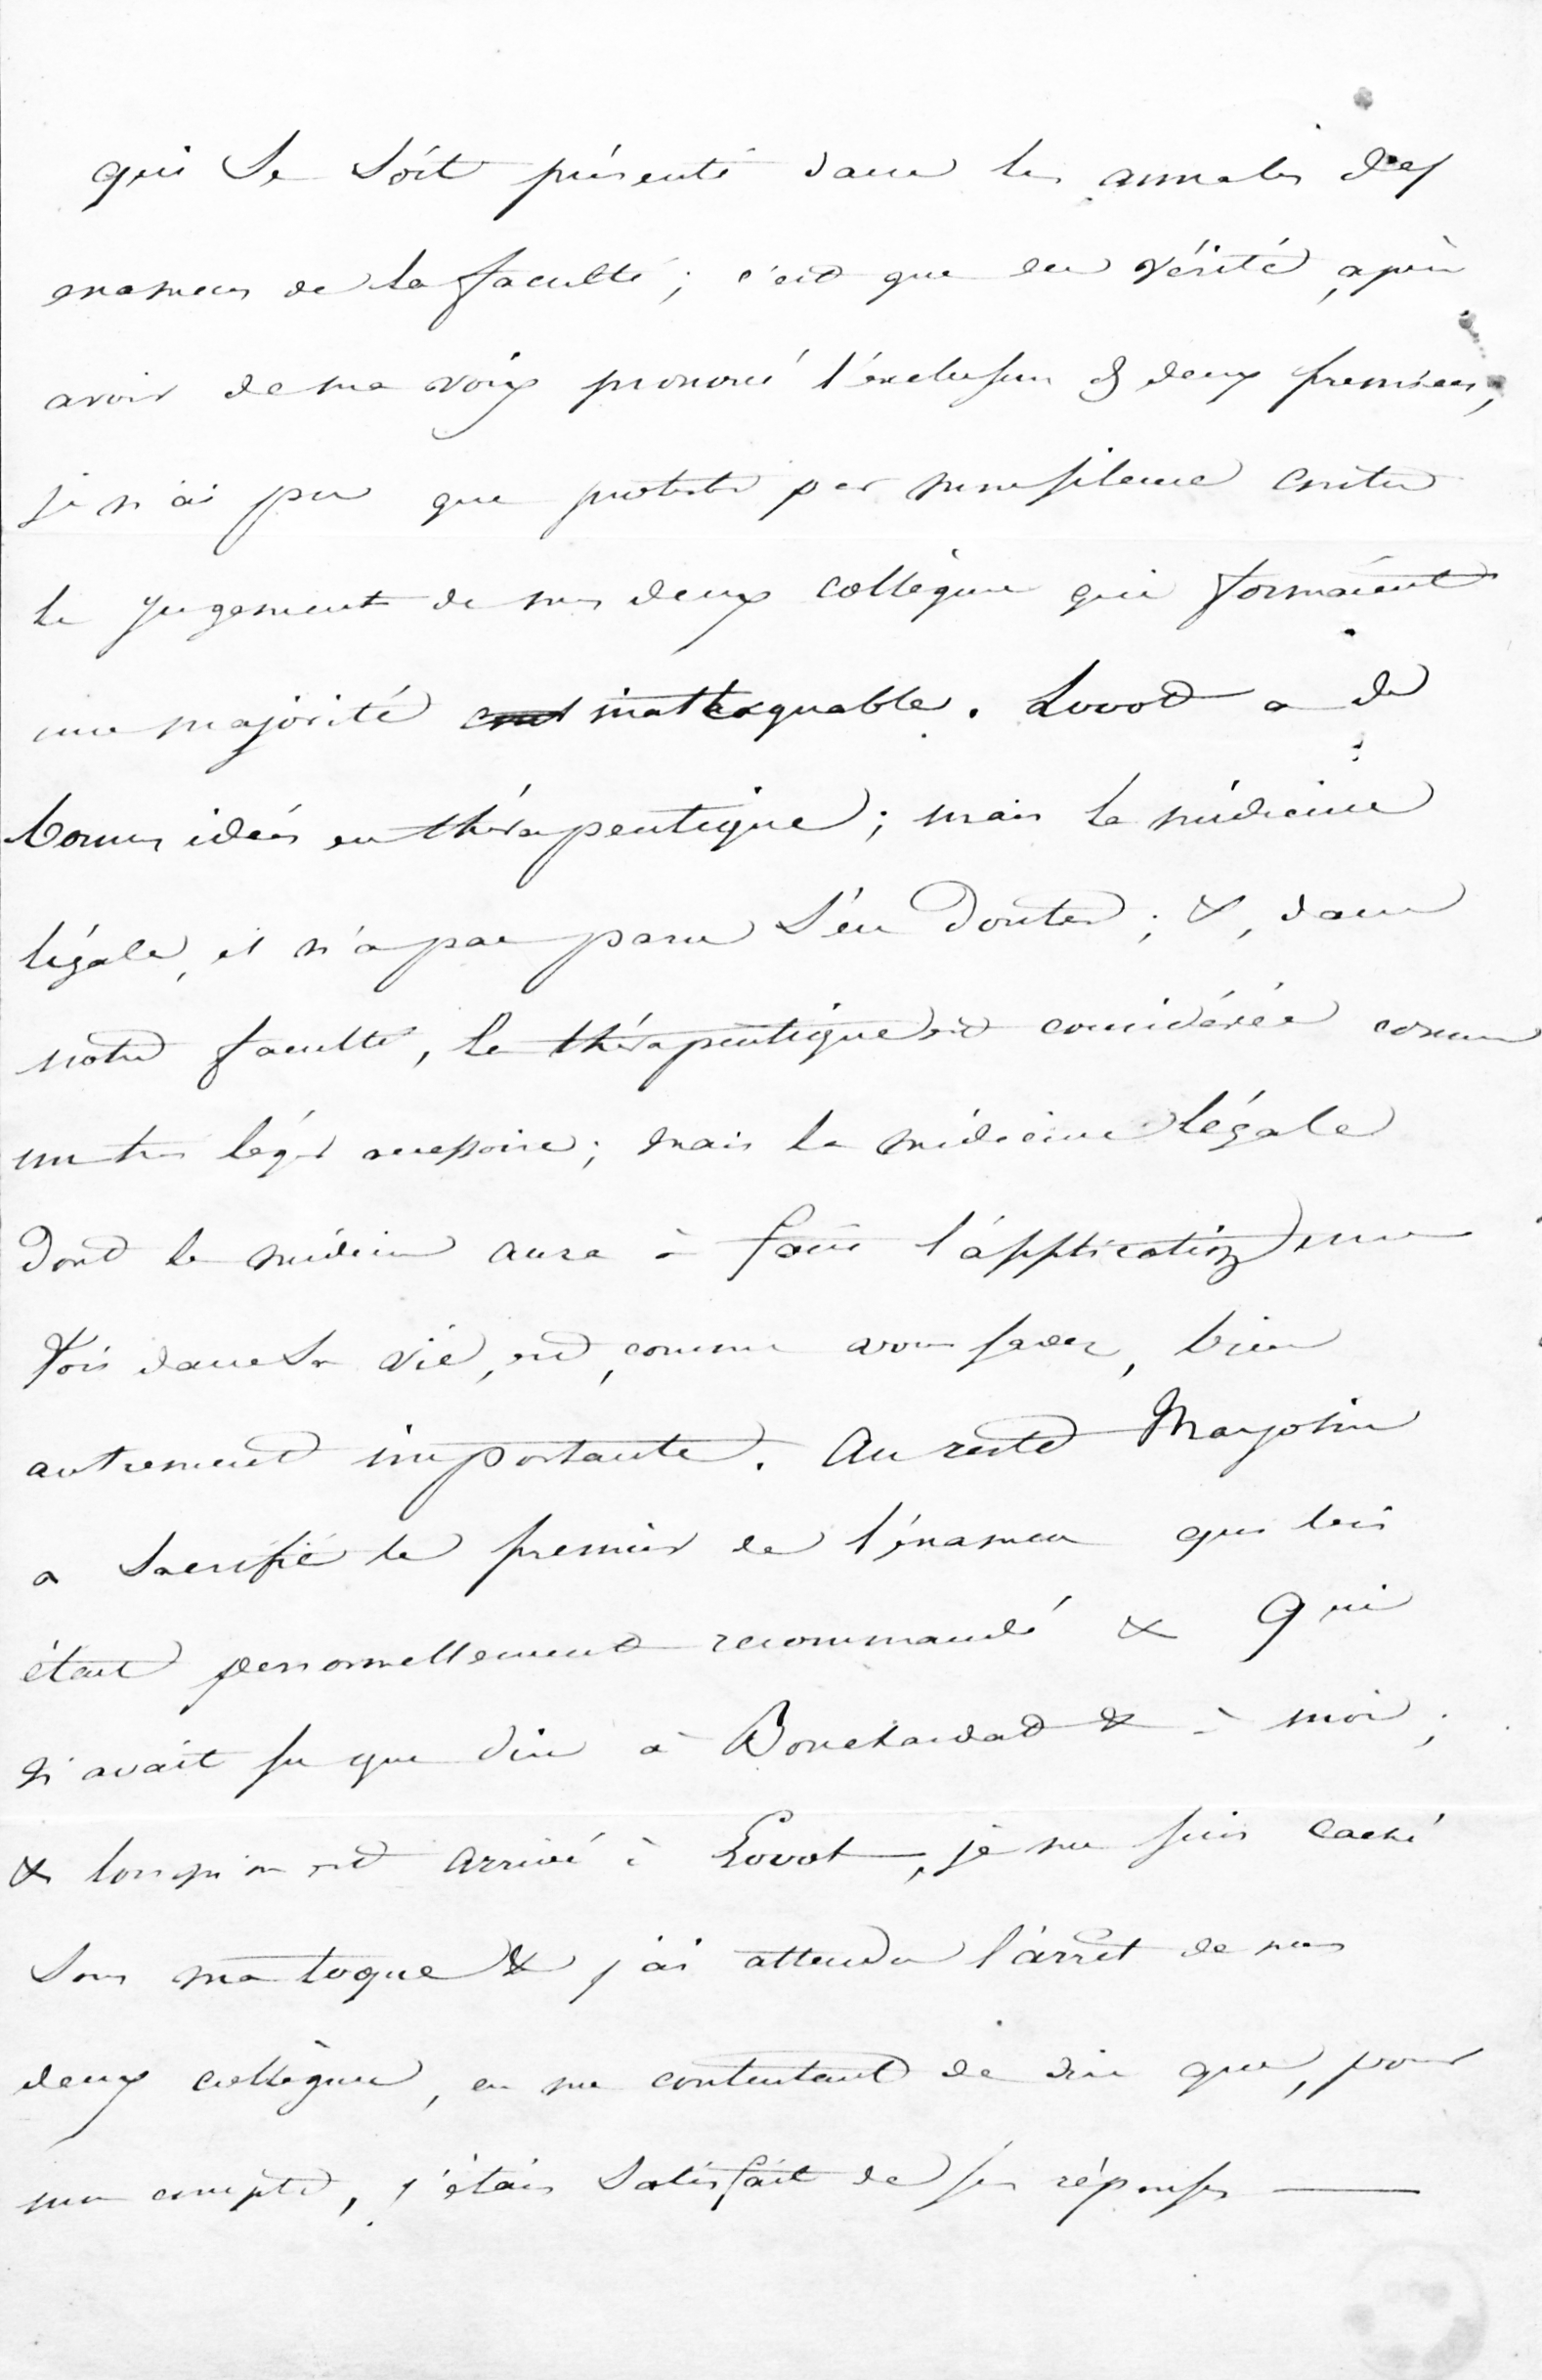 qui se soit présenté dans les annales des
examens de la faculté ; c'est que en vérité, après
avoir de ma voix prononcé l'exclusion des deux premiers,
je n'ai pu que protester par mon silence contre
le jugement de mes deux collègues qui formaient
une majorité inattaquable. Lovot a de
bonnes idées en thérapeutique ; mais la médecine
légale, il n'a pas paru s'en douter ; &, dans
notre faculté, la thérapeutique est considérée comme
un très léger accessoire ; mais la médecine légale
dont le médecin aura à faire l'application une
fois dans sa vie, est, comme vous savez, bien
autrement importante. Au reste Marjolin
a sacrifié le premier de l'examen qui lui
était personnellement recommandé & qui
n'avait su que dire à Bouchardat & à moi ;
& lorsqu'on est arrivé à Lovot, je me suis caché
sous ma toque & j'ai attendu l'arrêt de mes
deux collègues, en me contentant de dire que, pour
mon compte, j'étais satisfait de ses réponses —